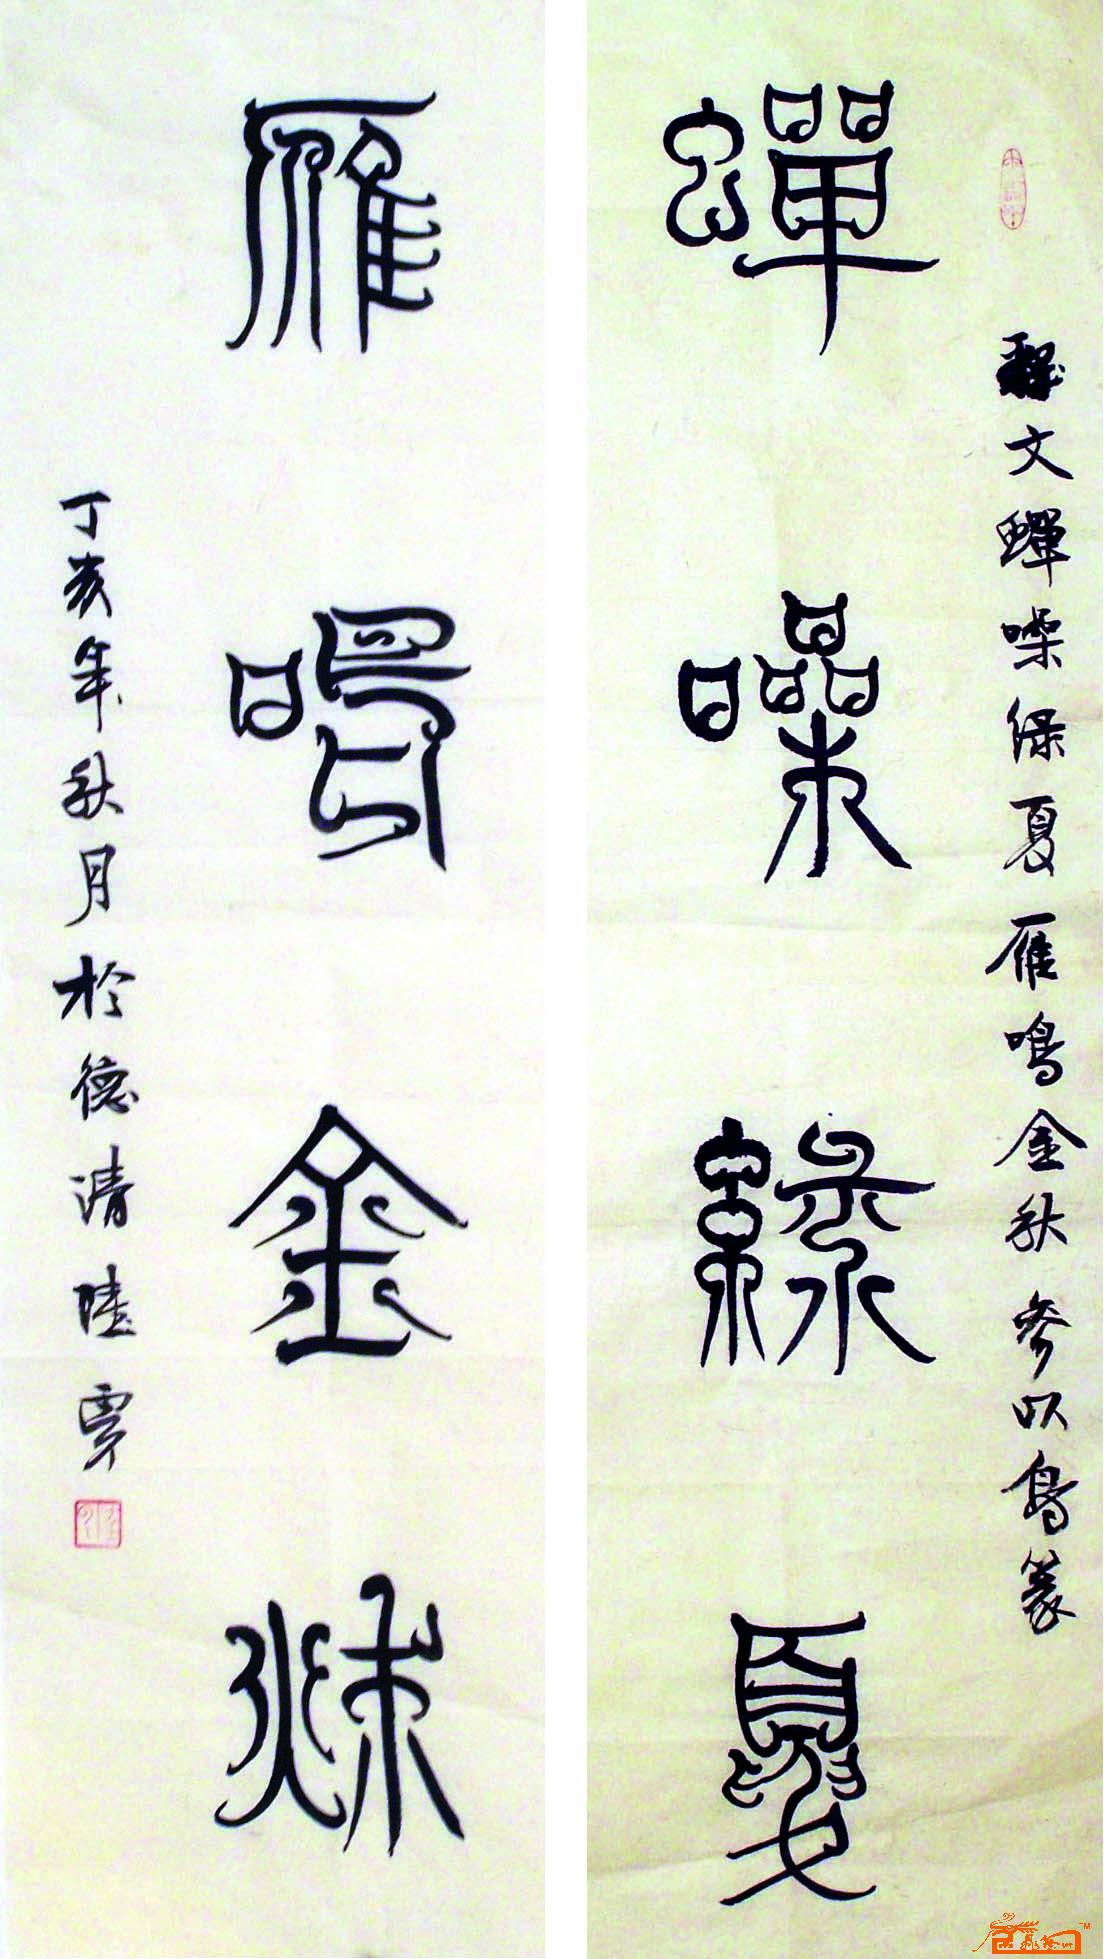 蟬噪綠夏
釋文蟬噪绿夏雁鳴金秋參以鳥篆
雁鳴金秋
丁亥年秋月於德清陸賈